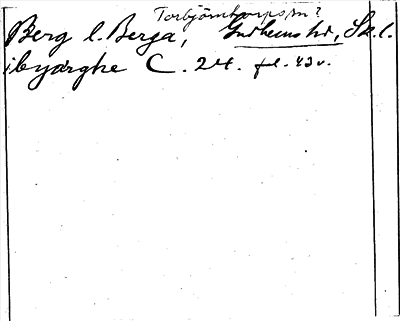 Torbjörntorps sn?
Berg l. Berga, Gudhems hd, Sk. l.
i byærghe C. 24. fl. 43v.